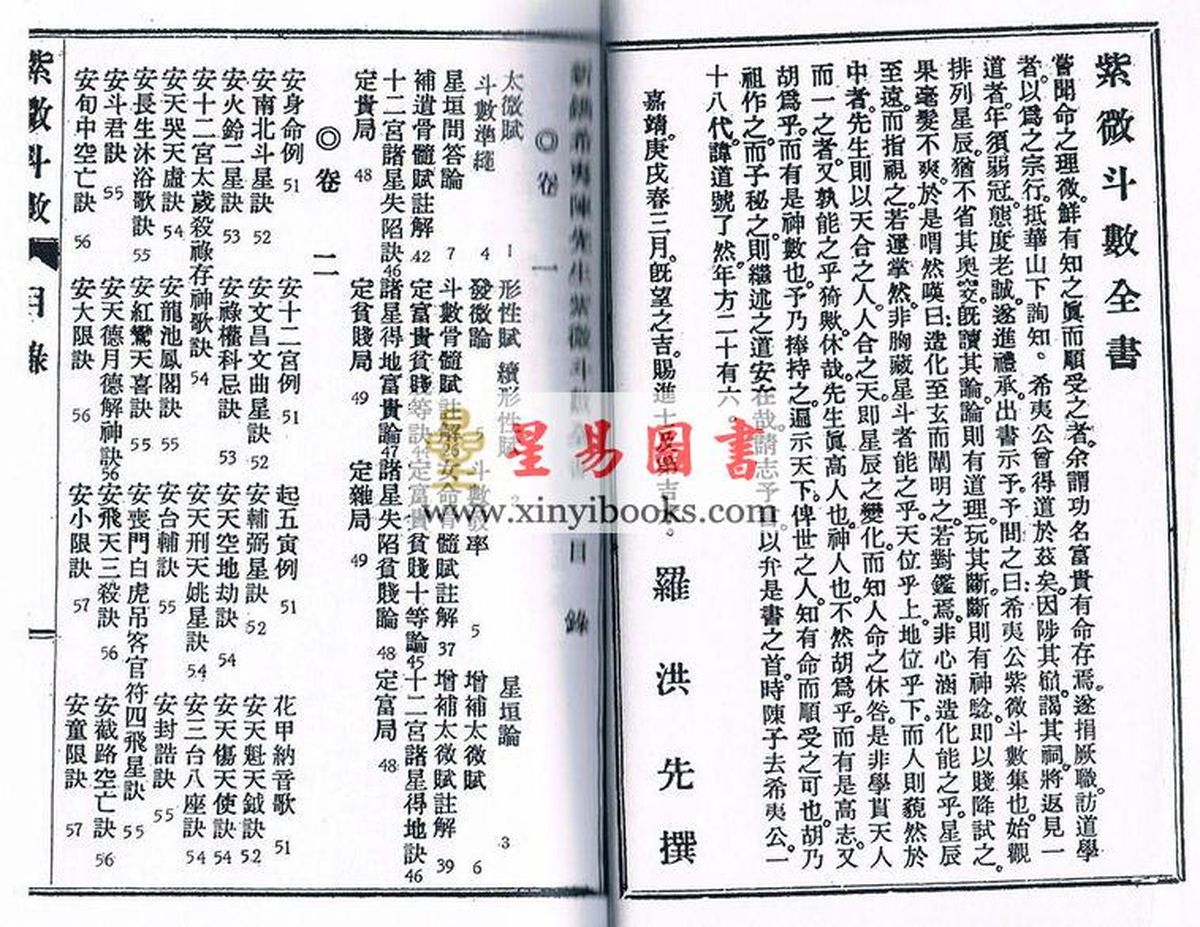 紫微斗數全書
嘗聞命之理微。鮮有知之眞而順受之者。余謂功名富貴有命存焉。遂捐厥職。訪道學
者。以爲之宗。行抵華山下詢知。希夷公曾得道於茲矣。因陟其嶺。謁其祠。將返見一
道者。年須弱冠。態度老誠。遂進禮。承出書示予。予問之曰。希夷公紫微斗數集也。始觀
排列星辰。猶不省其奧。旣讀其論。論則有道理。玩其斷。斷則有神驗。即以賤降試之。
果毫髮不爽。於是喟然嘆曰。造化至玄而闡明之。若對鑑焉。非心涵造化能之乎。星辰
至遠。而指視之若運掌然。非胸藏星斗者能之乎。天位乎上。地位乎下。而人則藐然於
中者。先生則以天合之人。人合之天。即星辰之變化。而知人命之休咎。是非學貫天人
而一之者。又孰能之乎。猗歟休哉。先生眞高人也。神人也。不然胡爲乎。而有是高志。又
胡爲乎。而有是神數也。予乃捧持之。遍示天下。俾世之人。知有命而順受之可也。胡乃
祖作之。而子秘之。則繼述之道安在哉。請志予言。以弁是書之首。時陳子去希夷公。一
十八代。諱道號了然。年方二十有六。
嘉靖。庚戌春三月。旣望之吉。賜進士及第吉水。羅洪先撰
新鋟希夷陳先生紫微斗數全書 目錄
◎卷一
太微賦 1 形性賦 續形性賦 2 星垣論 3
斗數準繩 4 發微論 5 斗數彀率 5 增補太微賦 6
星垣問答論 7 斗數骨髓賦註解 26 女命骨髓賦註解 37 增補太微賦註解 39
補遺骨髓賦註解 42 定富貴貧賤等訣 44 定富貴貧賤十等論 45 十二宮諸星得地訣 46
十二宮諸星失陷訣 46 諸星得地富貴論 47 諸星失陷貧賤論 48 定富局 48
定貴局 48 定貧賤局 49 定雜局 49
◎卷二
安身命例 51 安十二宮例 51 起五寅例 51 花甲納音歌 51
安南北斗星訣 52 安文昌文曲星訣 52 安輔弼星訣 52 安天魁天鉞訣 52
安火鈴二星訣 53 安祿權科忌訣 53 安天空地劫訣 54 安天傷天使訣 54
安十二宮太歲殺祿存神歌訣 54 安天刑天姚星訣 54 安三台八座訣 54
安天哭天虛訣 54 安龍池鳳閣訣 55 安台輔訣 55 安封誥訣 55
安長生沐浴歌訣 55 安紅鸞天喜訣 55 安喪門白虎吊客官符四飛星訣 55
安斗君訣 55 安天德月德解神訣 56 安飛天三殺訣 56 安截路空亡訣 56
安旬中空亡訣 56 安大限訣 56 安小限訣 57 安童限訣 57
紫微斗數 目錄
星易圖書
www.xinyibooks.com